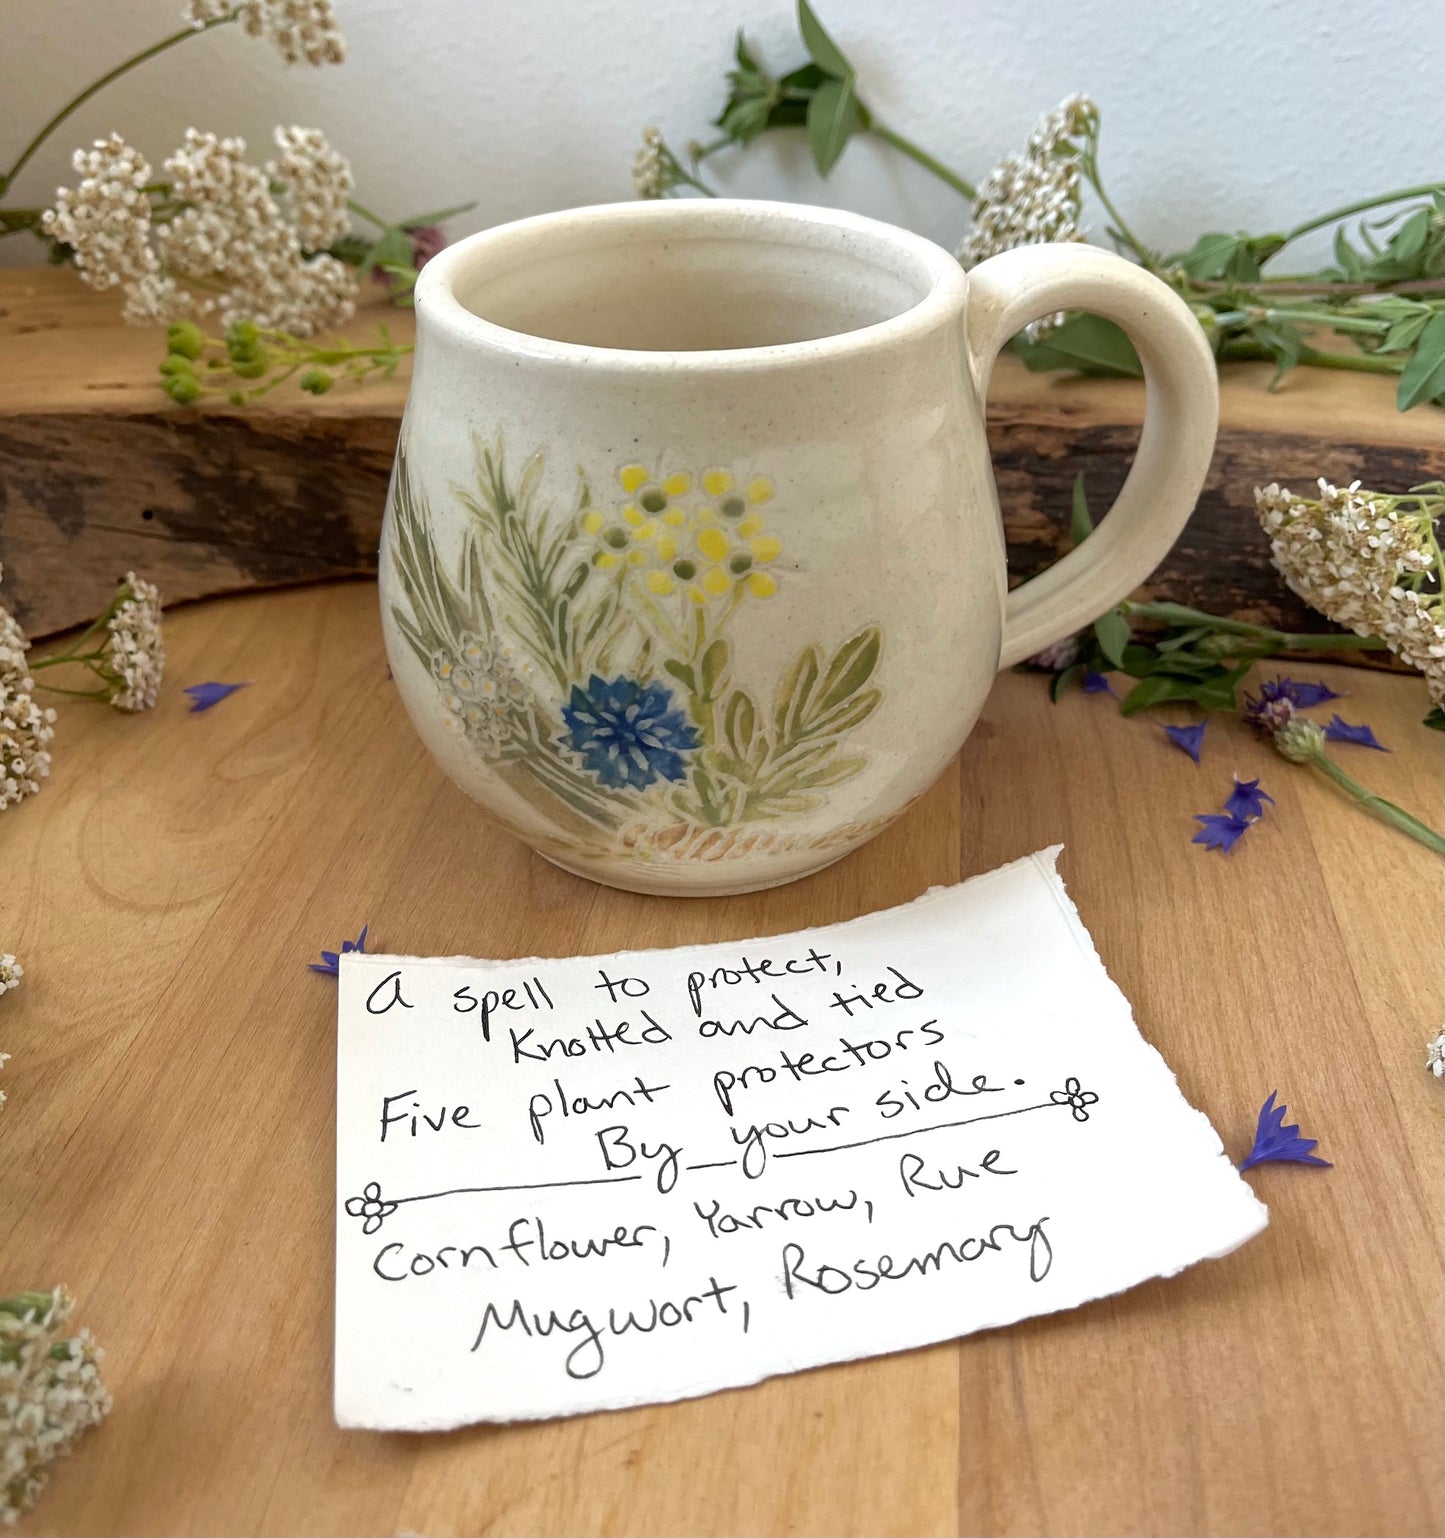 A spell to protect,
Knotted and tied
Five plant protectors
By your side.
Cornflower, Yarrow, Rue
Mugwort, Rosemary